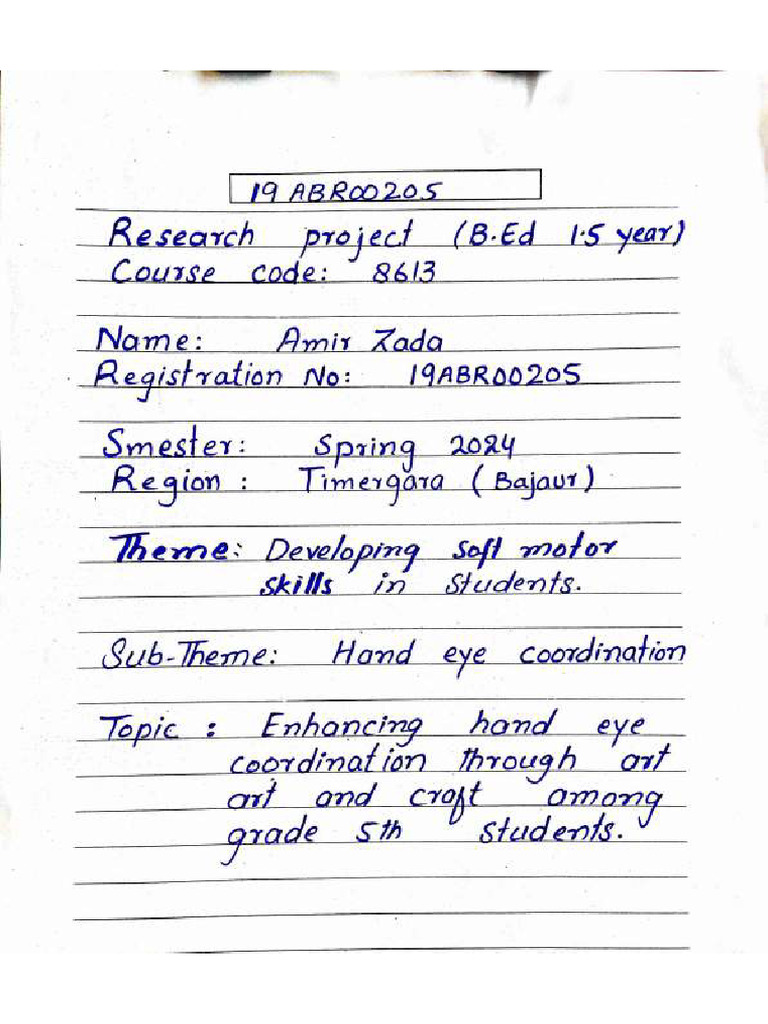 19ABR00205
Research project (B.Ed 1.5 year)
Course code: 8613
Name: Amir Zada
Registration No: 19ABR00205
Smester: Spring 2024
Region: Timergara (Bajaur)
Theme: Developing soft motor
skills in students.
Sub-Theme: Hand eye coordination
Topic: Enhancing hand eye
coordination through art
art and craft among
grade 5th students.